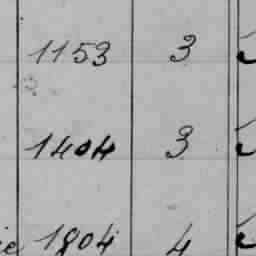 1153 3
1404 3
1804 4